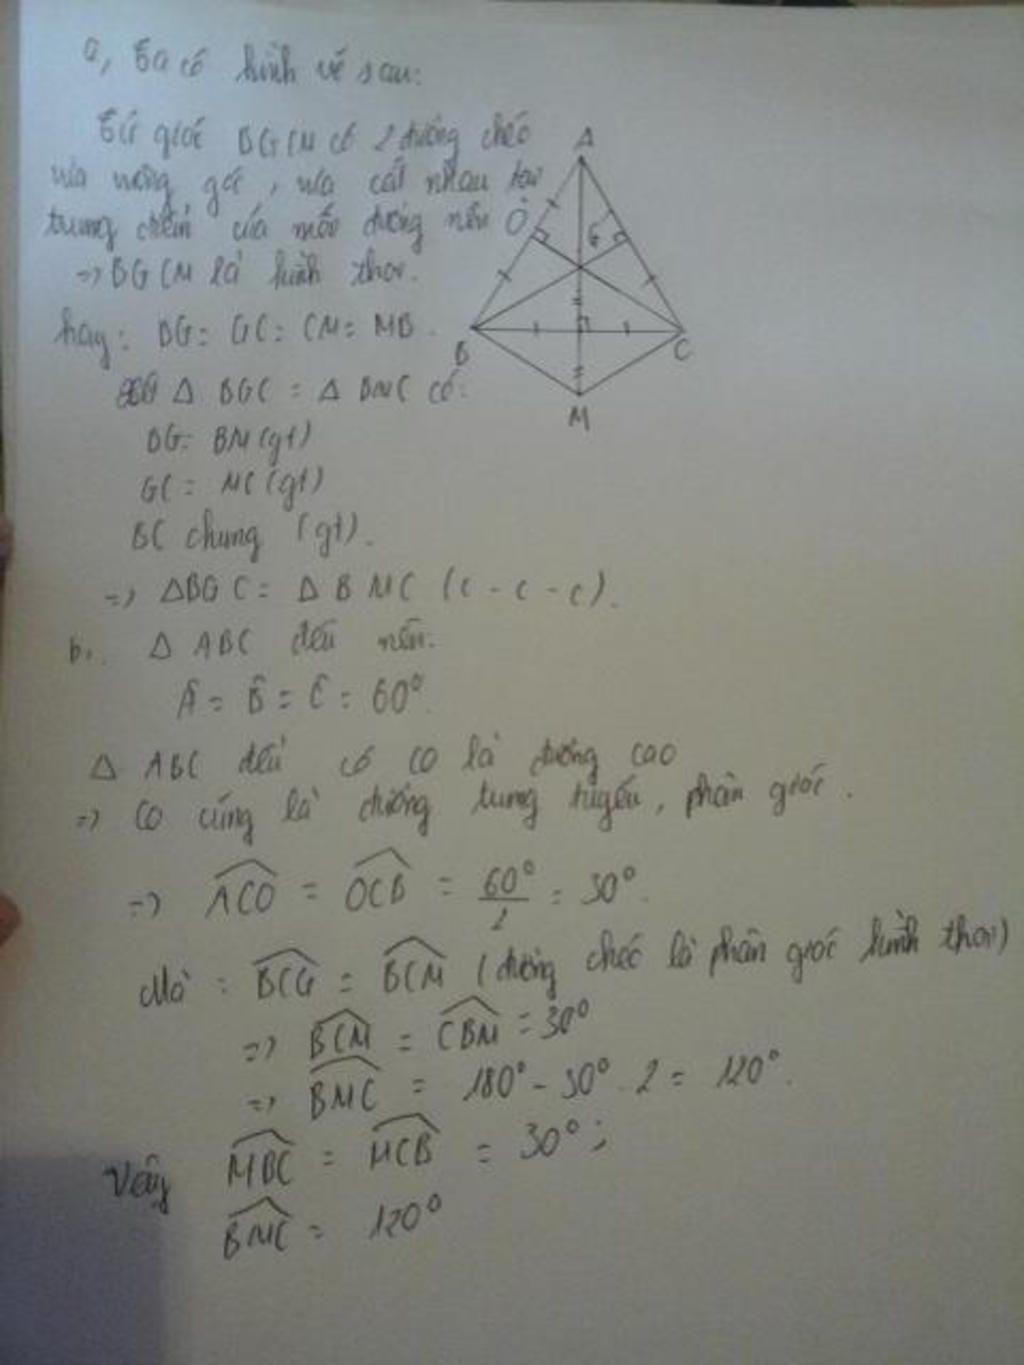 a, Ta có hình vẽ sau:
Tứ giác BGCM có 2 đường chéo
vừa vuông góc, vừa cắt nhau tại
trung điểm của mỗi đường nên
=> BGCM là hình thoi.
hay: BG = GC = CM = MB.
Δ BGC = Δ BMC có:
BG = BM (gt)
GC = MC (gt)
BC chung (gt).
=> ΔBGC = Δ BMC (c - c - c).
b. Δ ABC đều nên:
Â = B̂ = Ĉ = 60°.
Δ ABC đều có CO là đường cao
=> CO cũng là đường trung tuyến, phân giác.
=> ACO = OCB = 60°/2 = 30°.
Mà: BCG = BCM (đường chéo là phân giác hình thoi)
=> BCM = CBM = 30°
=> BMC = 180° - 30°.2 = 120°.
Vậy MBC = MCB = 30°;
BMC = 120°
A
O
G
B
C
M